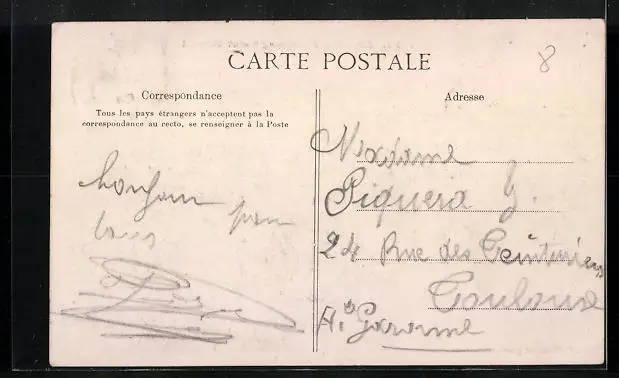 CARTE POSTALE
8
Correspondance
Tous les pays étrangers n'acceptent pas la
correspondance au recto, se renseigner à la Poste
bonjour pour
tous
Adresse
Madame
Piquera J.
24 Rue des Teinturiers
Toulouse
Hte Garonne